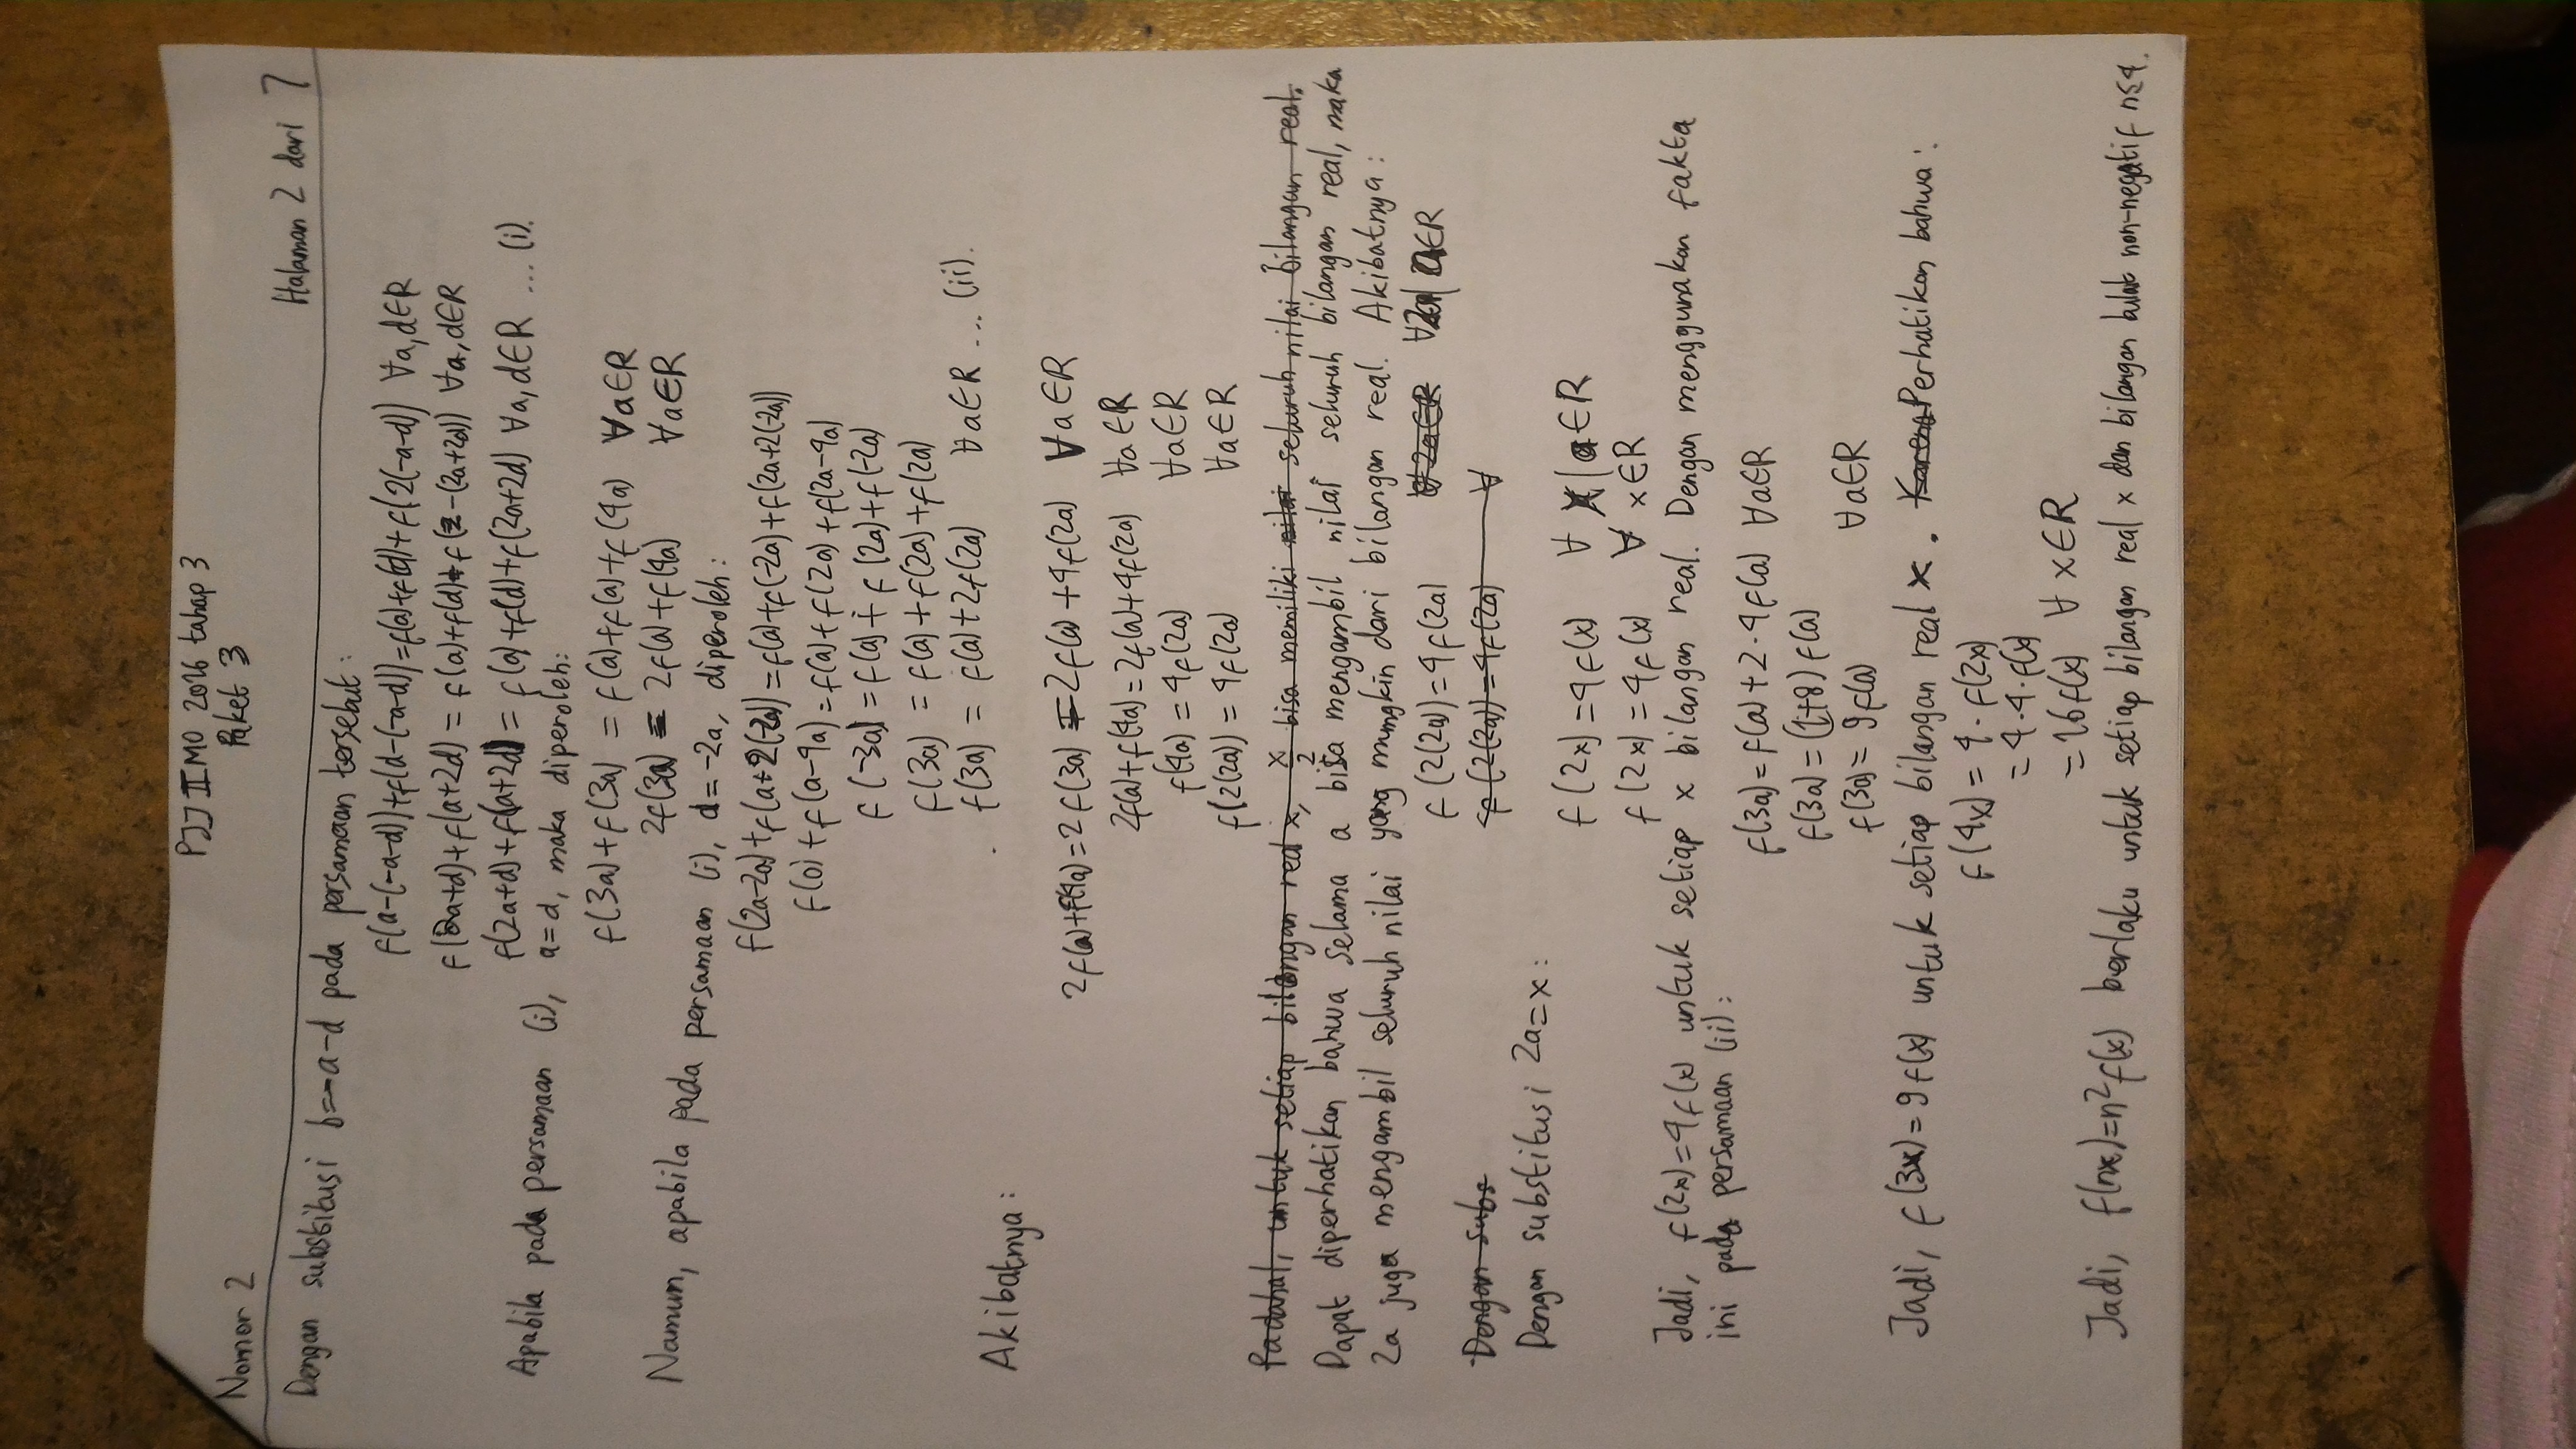 PJJ IMO 2026 tahap 3
Paket 3
Nomor 2
Halaman 2 dari 7
Dengan substitusi b=-a-d pada persamaan tersebut:
f(a-(-a-d))+f(d-(-a-d))=f(a)+f(d)+f(2(-a-d)) ∀a,d∈R
f(2a+d)+f(a+2d) = f(a)+f(d)+f(-(2a+2d)) ∀a,d∈R
f(2a+d)+f(a+2d) = f(a)+f(d)+f(2a+2d) ∀a,d∈R ... (i).
Apabila pada persamaan (i), a=d, maka diperoleh:
f(3a)+f(3a) = f(a)+f(a)+f(4a) ∀a∈R
2f(3a) = 2f(a)+f(4a) ∀a∈R
Namun, apabila pada persamaan (i), d=-2a, diperoleh:
f(2a-2a)+f(a+2(-2a))=f(a)+f(-2a)+f(2a+2(-2a))
f(0)+f(a-4a)=f(a)+f(2a)+f(2a-4a)
f(-3a)=f(a)+f(2a)+f(-2a)
f(3a) = f(a)+f(2a)+f(2a)
f(3a) = f(a)+2f(2a) ∀a∈R ... (ii).
Akibatnya:
2f(a)+f(4a)=2f(3a)=2f(a)+4f(2a) ∀a∈R
2f(a)+f(4a)=2f(a)+4f(2a) ∀a∈R
f(4a) = 4f(2a) ∀a∈R
f(2(2a)) = 4f(2a) ∀a∈R
Padahal, untuk setiap bilangan real x, x/2 bisa memiliki nilai seluruh nilai bilangan real.
Dapat diperhatikan bahwa selama a bisa mengambil nilai seluruh bilangan real, maka
2a juga mengambil seluruh nilai yang mungkin dari bilangan real. Akibatnya:
f(2(2a))=4f(2a) ∀2a∈R ∀2a| a∈R
Dengan subs f(2(2a))=4f(2a) ∀
Dengan substitusi 2a=x:
f(2x)=4f(x) ∀ x|a∈R
f(2x)=4f(x) ∀ x∈R
Jadi, f(2x)=4f(x) untuk setiap x bilangan real. Dengan menggunakan fakta
ini pada persamaan (ii):
f(3a)=f(a)+2·4f(a) ∀a∈R
f(3a)=(1+8)f(a)
f(3a)= 9f(a) ∀a∈R
Jadi, f(3x)=9f(x) untuk setiap bilangan real x. Karena Perhatikan bahwa:
f(4x)= 4·f(2x)
= 4·4·f(x)
= 16f(x) ∀ x∈R
Jadi, f(nx)=n²f(x) berlaku untuk setiap bilangan real x dan bilangan bulat non-negatif n≤4.